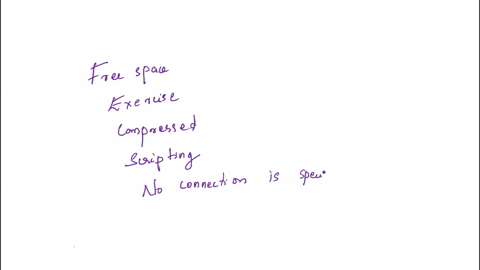 Free space
Exercise
Compressed
Scripting
No connection is spec